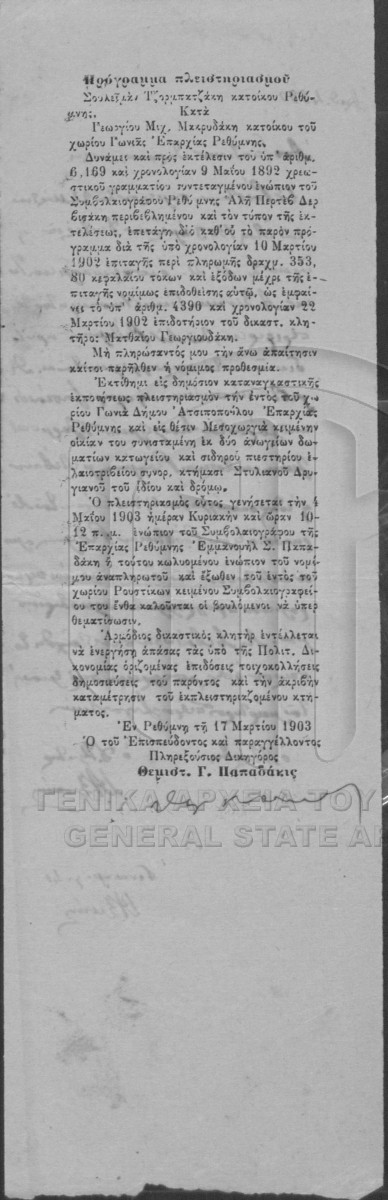 Πρόγραμμα πλειστηριασμοῦ
Σουλεϊμὰν Τζορμπατζάκη κατοίκου Ρεθύ-
μνης. Κατὰ
Γεωργίου Μιχ. Μακρυδάκη κατοίκου τοῦ
χωρίου Γωνιᾶς Ἐπαρχίας Ρεθύμνης.
Δυνάμει καὶ πρὸς ἐκτέλεσιν τοῦ ὑπ' ἀριθμ.
6,169 καὶ χρονολογίαν 9 Μαΐου 1892 χρεω-
στικοῦ γραμματίου συντεταγμένου ἐνώπιον τοῦ
Συμβολαιογράφου Ρεθύμνης Ἀλῆ Περτὲβ Δερ
βισάκη περιβεβλημένου καὶ τὸν τύπον τῆς ἐκ-
τελέσεως, ἐπετάγη διὸ καθ' οὗ τὸ παρὸν πρό-
γραμμα διὰ τῆς ὑπὸ χρονολογίαν 10 Μαρτίου
1902 ἐπιταγῆς περὶ πληρωμῆς δραχμ. 353,
80 κεφαλαίου τόκων καὶ ἐξόδων μέχρι τῆς ἐ-
πιταγῆς νομίμως ἐπιδοθείσης αὐτῷ, ὡς ἐμφαί-
νει τὸ ὑπ' ἀριθμ. 4390 καὶ χρονολογίαν 22
Μαρτίου 1902 ἐπιδοτήριον τοῦ δικαστ. κλη-
τῆρος Ματθαίου Γεωργιουδάκη.
Μὴ πληρώσαντός μου τὴν ἄνω ἀπαίτησιν
καίτοι παρῆλθεν ἡ νόμιμος προθεσμία.
Ἐκτίθημι εἰς δημόσιον καταναγκαστικῆς
ἐκποιήσεως πλειστηριασμὸν τὴν ἐντὸς τοῦ χω
ρίου Γωνιὰ Δήμου Ἀτσιποπούλου Ἐπαρχίας
Ρεθύμνης καὶ εἰς θέσιν Μεσοχωριὰ κειμένην
οἰκίαν του συνισταμένη ἐκ δύο ἀνωγείων δω-
ματίων κατωγείου καὶ σιδηροῦ πιεστηρίου ἐ-
λαιοτριβείου συνορ. κτήμασι Στυλιανοῦ Δρυ-
γιανοῦ τοῦ ἰδίου καὶ δρόμῳ.
Ὁ πλειστηριασμὸς οὗτος γενήσεται τὴν 4
Μαΐου 1903 ἡμέραν Κυριακὴν καὶ ὥραν 10-
12 π. μ. ἐνώπιον τοῦ Συμβολαιογράφου τῆς
Ἐπαρχίας Ρεθύμνης Ἐμμανουὴλ Σ. Παπα-
δάκη ἢ τούτου κωλυομένου ἐνώπιον τοῦ νομί-
μου ἀναπληρωτοῦ καὶ ἔξωθεν τοῦ ἐντὸς τοῦ
χωρίου Ρουστίκων κειμένου Συμβολαιογραφεί-
ου του ἔνθα καλοῦνται οἱ βουλόμενοι νὰ ὑπερ
θεματίσωσιν.
Ἁρμόδιος δικαστικὸς κλητὴρ ἐντέλλεται
νὰ ἐνεργήσῃ ἁπάσας τὰς ὑπὸ τῆς Πολιτ. Δι-
κονομίας ὁριζομένας ἐπιδόσεις τοιχοκολλήσεις
δημοσιεύσεις τοῦ παρόντος καὶ τὴν ἀκριβῆ
καταμέτρησιν τοῦ ἐκπλειστηριαζομένου κτή-
ματος.
Ἐν Ρεθύμνῃ τῇ 17 Μαρτίου 1903
Ὁ τοῦ Ἐπισπεύδοντος καὶ παραγγέλλοντος
Πληρεξούσιος Δικηγόρος
Θεμιστ. Γ. Παπαδάκις
ΓΕΝΙΚΑ ΑΡΧΕΙΑ ΤΟΥ
GENERAL STATE AR